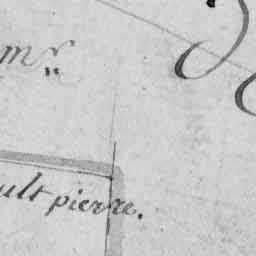 mr
ult pierre.